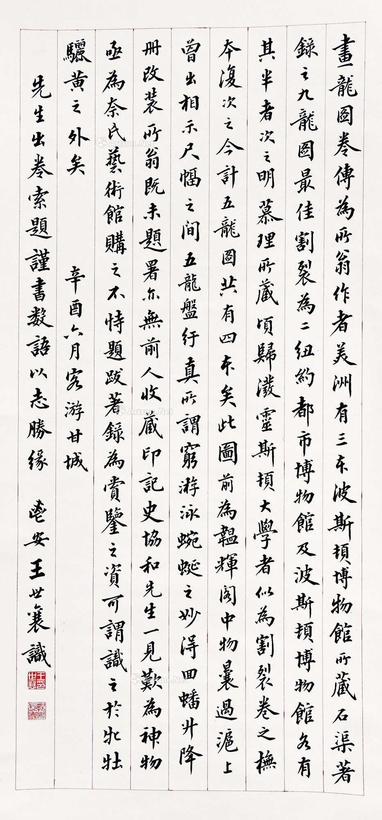 畫龍圖卷傳為所翁作者美洲有三本波斯頓博物館所藏石渠著
錄之九龍圖最佳割裂為二紐約都市博物館及波斯頓博物館各有
其半者次之明慕理所藏頃歸潑靈斯頓大學者似為割裂卷之橅
本復次之今計五龍圖共有四本矣此圖前為韞輝閣中物曩過滬上
曾出相示尺幅之間五龍盤行真所謂窮游泳蜿蜒之妙得回蟠升降
冊改裝所翁既未題署尔無前人收藏印記史協和先生一見歎為神物
亟為奈氏藝術館購之不恃題跋著錄為賞鑒之資可謂識之於牝牡
驪黃之外矣　辛酉六月客游甘城
先生出卷索題謹書數語以志勝緣　鬯安王世襄識